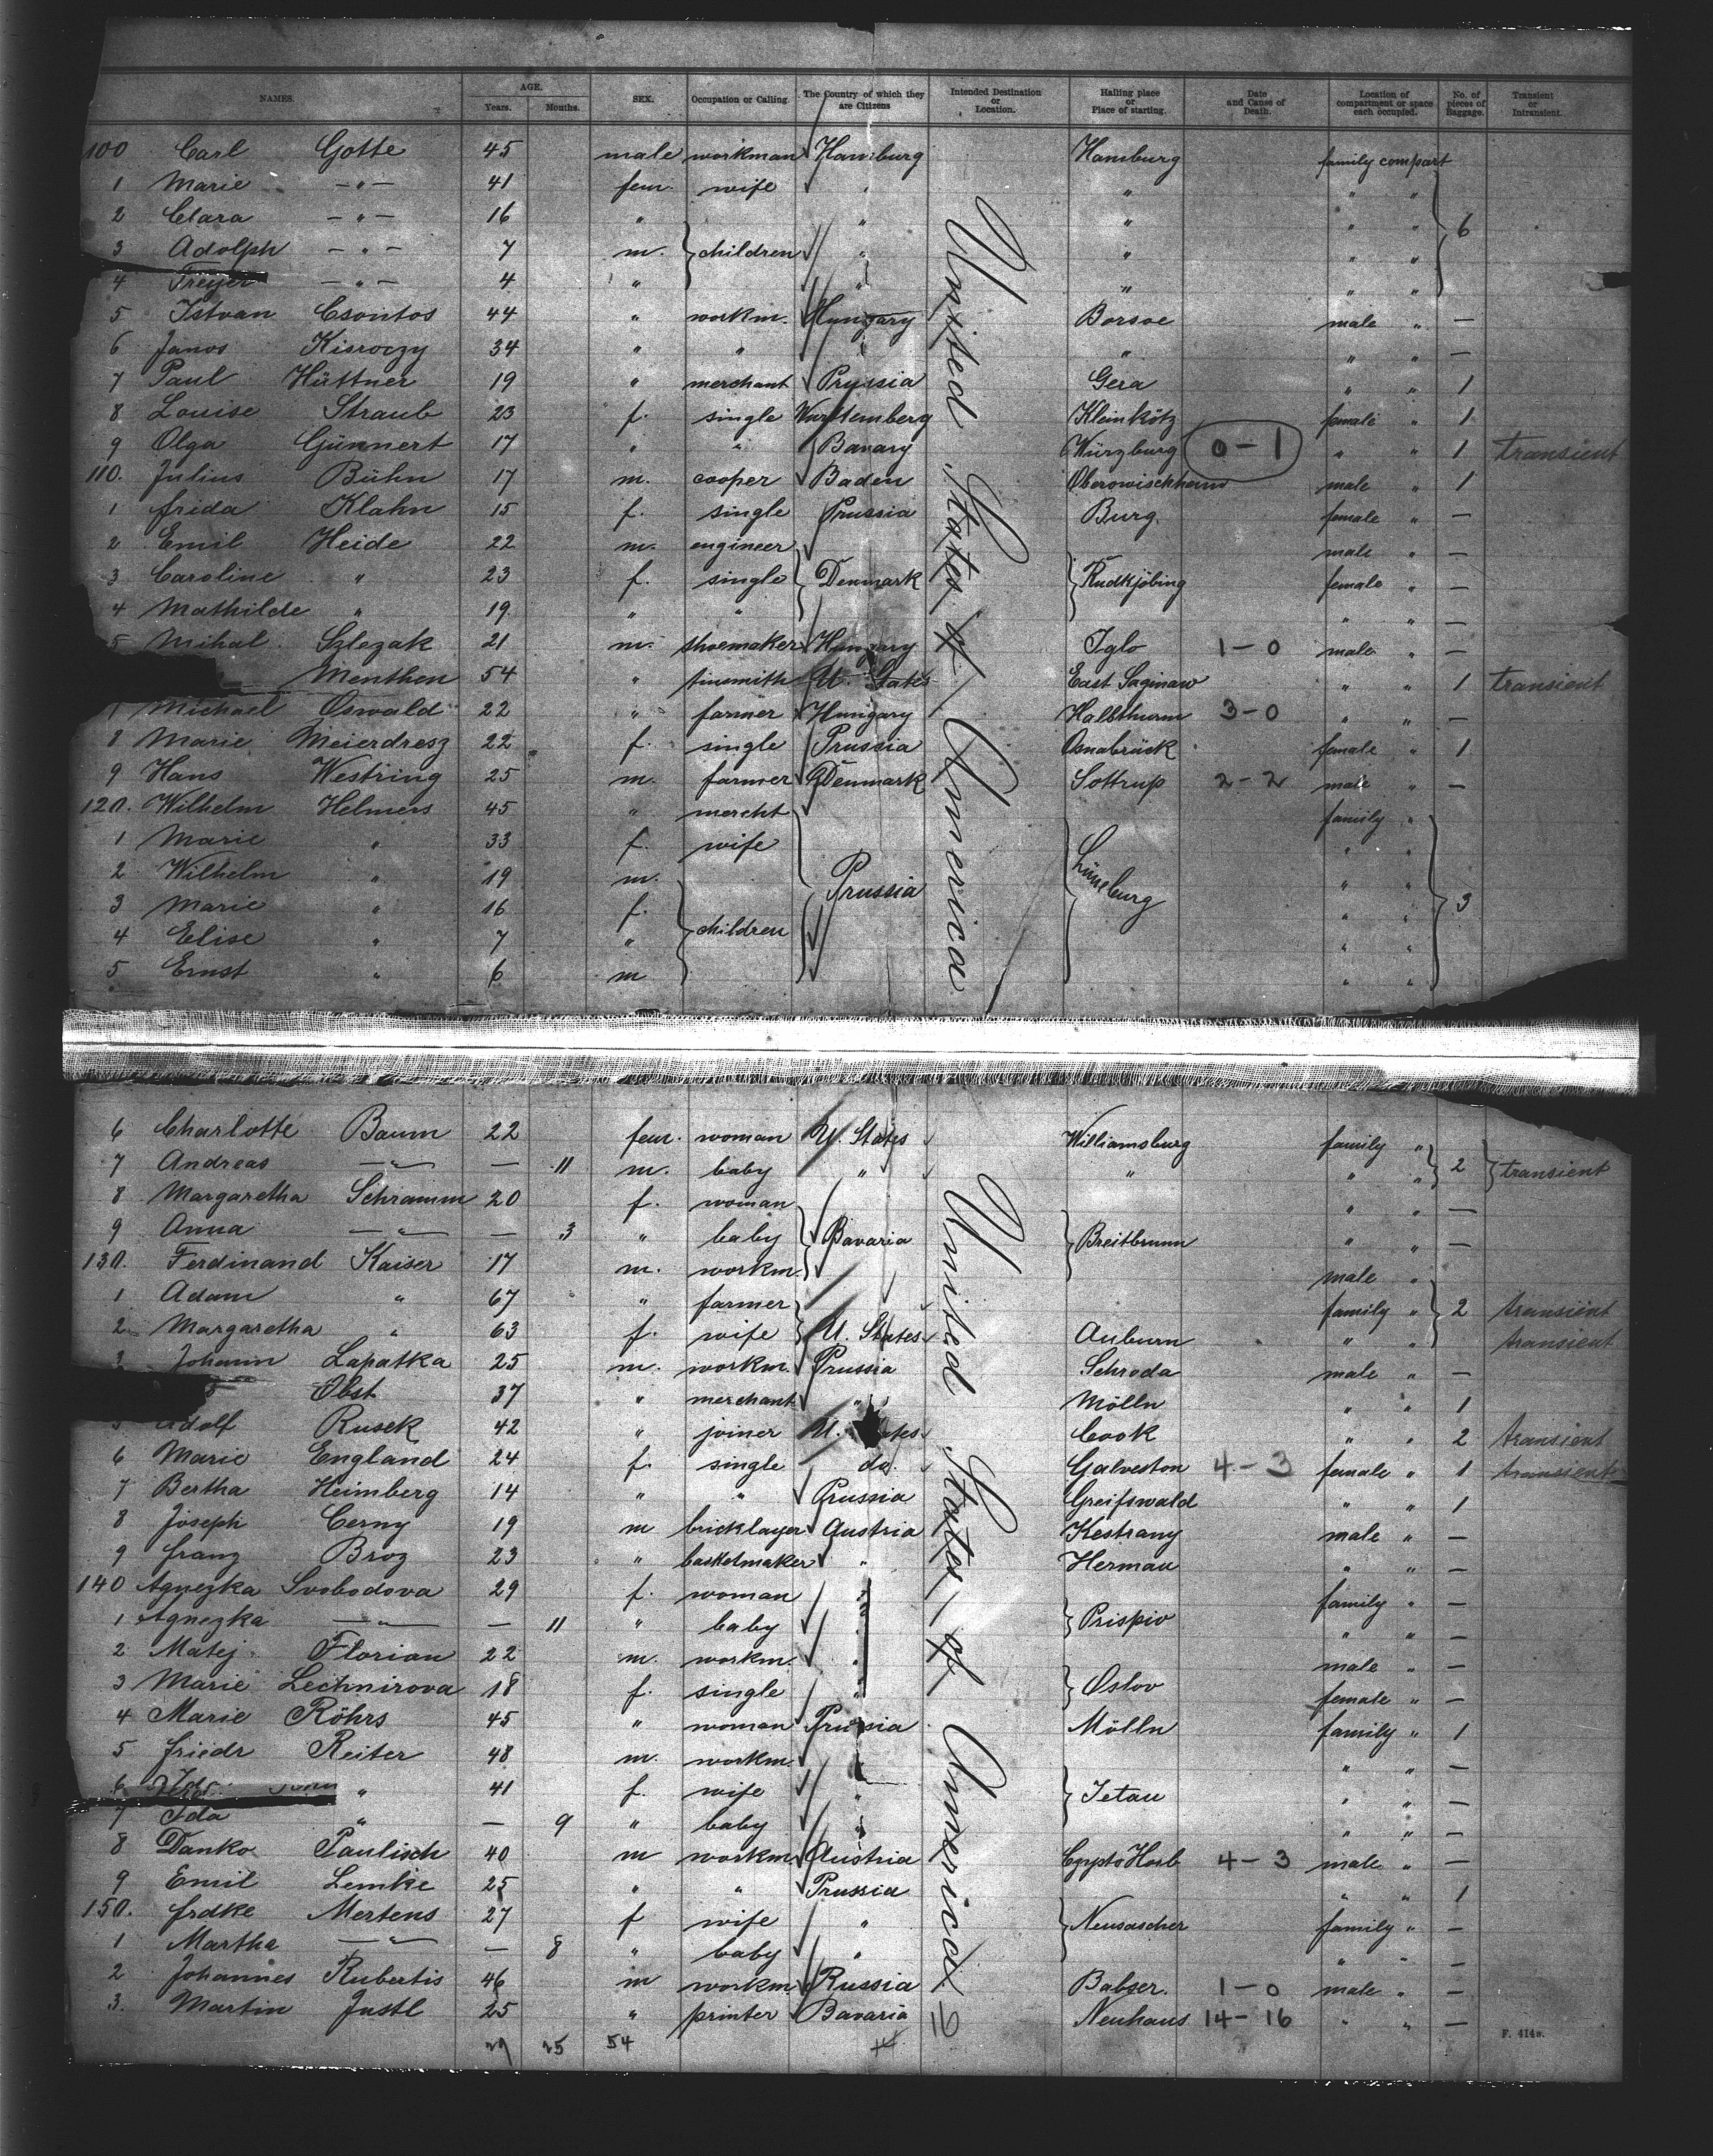 NAMES. AGE. Years. Months. SEX. Occupation or Calling. The Country of which they are Citizens Intended Destination or Location. Halling place or Place of starting. Date and Cause of Death. Location of compartment or space each occupied. No. of pieces of Baggage. Transient or Intransient.
100 Carl Gotte 45 male workman Hamburg Hamburg family compart
1 Marie -"- 41 fem. wife " " "
2 Clara -"- 16 " " " " "
3 Adolph -"- 7 m. children " " " " 6
4 Freyer -"- 4 " " " " "
5 Istvan Csontos 44 " workm. Hungary Borsoe male " —
6 Janos Kisroczy 34 " " " " " " —
7 Paul Hüttner 19 " merchant Prussia Gera " " 1
8 Louise Straub 23 f. single Wurttemberg Kleinkötz female " 1
9 Olga Günnert 17 " " Bavary Würzburg 0-1 " " 1 transient
110. Julius Bühn 17 m. cooper Baden Oberowischheim male " 1
1 Frida Klahn 15 f. single Prussia Burg. female " —
2 Emil Heide 22 m. engineer male " —
3 Caroline " 23 f. single Denmark Rudkjöbing female " —
4 Mathilde " 19. " " " " —
5 Mihal Szlezak 21 m. shoemaker Hungary Iglo 1-0 male " —
Menthen 54 " tinsmith U. States East Saginaw " " 1 transient
Michael Oswald 22 " farmer Hungary Halbthurm 3-0 " " —
8 Marie Meierdresz 22 f. single Prussia Osnabrück female " 1
9 Hans Westring 25 m. farmer Denmark Sottrup 2-2 male " —
120. Wilhelm Helmers 45 " mercht family "
1 Marie " 33 f. wife " "
2 Wilhelm " 19 m. Prussia Lüneburg " "
3 Marie " 16 f. " " 3
4 Elise " 7 " children " "
5 Ernst " 6 m " "
United States of America
6 Charlotte Baum 22 fem. woman U. States Williamsburg family "
7 Andreas -"- — 11 m. baby " " " " 2 transient
8 Margaretha Schramm 20 f. woman " " —
9 Anna -"- — 3 " baby Bavaria Breitbrunn " " —
130. Ferdinand Kaiser 17 m. workm. male "
1 Adam " 67 " farmer family " 2 transient
2. Margaretha " 63 f. wife U. States Auburn " " transient
3 Johann Lapatka 25 m. workm. Prussia Schroda male " —
Obst 37 " merchant " Mölln " " 1
5 Adolf Rusek 42 " joiner U. States Cook " " 2 transient
6 Marie England 24 f. single do. Galveston 4-3 female " 1 transient
7 Bertha Heimberg 14 " " Prussia Greifswald " " 1
8 Joseph Cerny 19 m bricklayer Austria Kestrany male " —
9 Franz Broz 23 " basketmaker " Herman " " —
140 Agnezka Svobodova 29 f. woman " family " —
1 Agnezka -"- — 11 " baby " Prispio " " —
2 Matej Florian 22 m. workm. " male " —
3 Marie Lechnirova 18 f. single " Ostov female " —
4 Marie Röhrs 45 " woman Prussia Mölln family " 1
5 Friedr Reiter 48 m. workm. " " —
6 " 41 f. wife " Tetau " " —
7 Ida " — 9 " baby " " " —
8 Danko Paulisch 40 m workm. Austria 4-3 male " —
9 Emil Lemke 25 " " Prussia " " 1
150. Frdke Mertens 27 f wife " Neusascher family " —
1 Martha -"- — 8 " baby " " " —
2 Johannes Rubertis 46 m workm. Russia Babser. 1-0 male " —
3. Martin Justl 25 " printer Bavaria Neuhaus 14-16 " " —
United States of America
25 54
F. 414w.